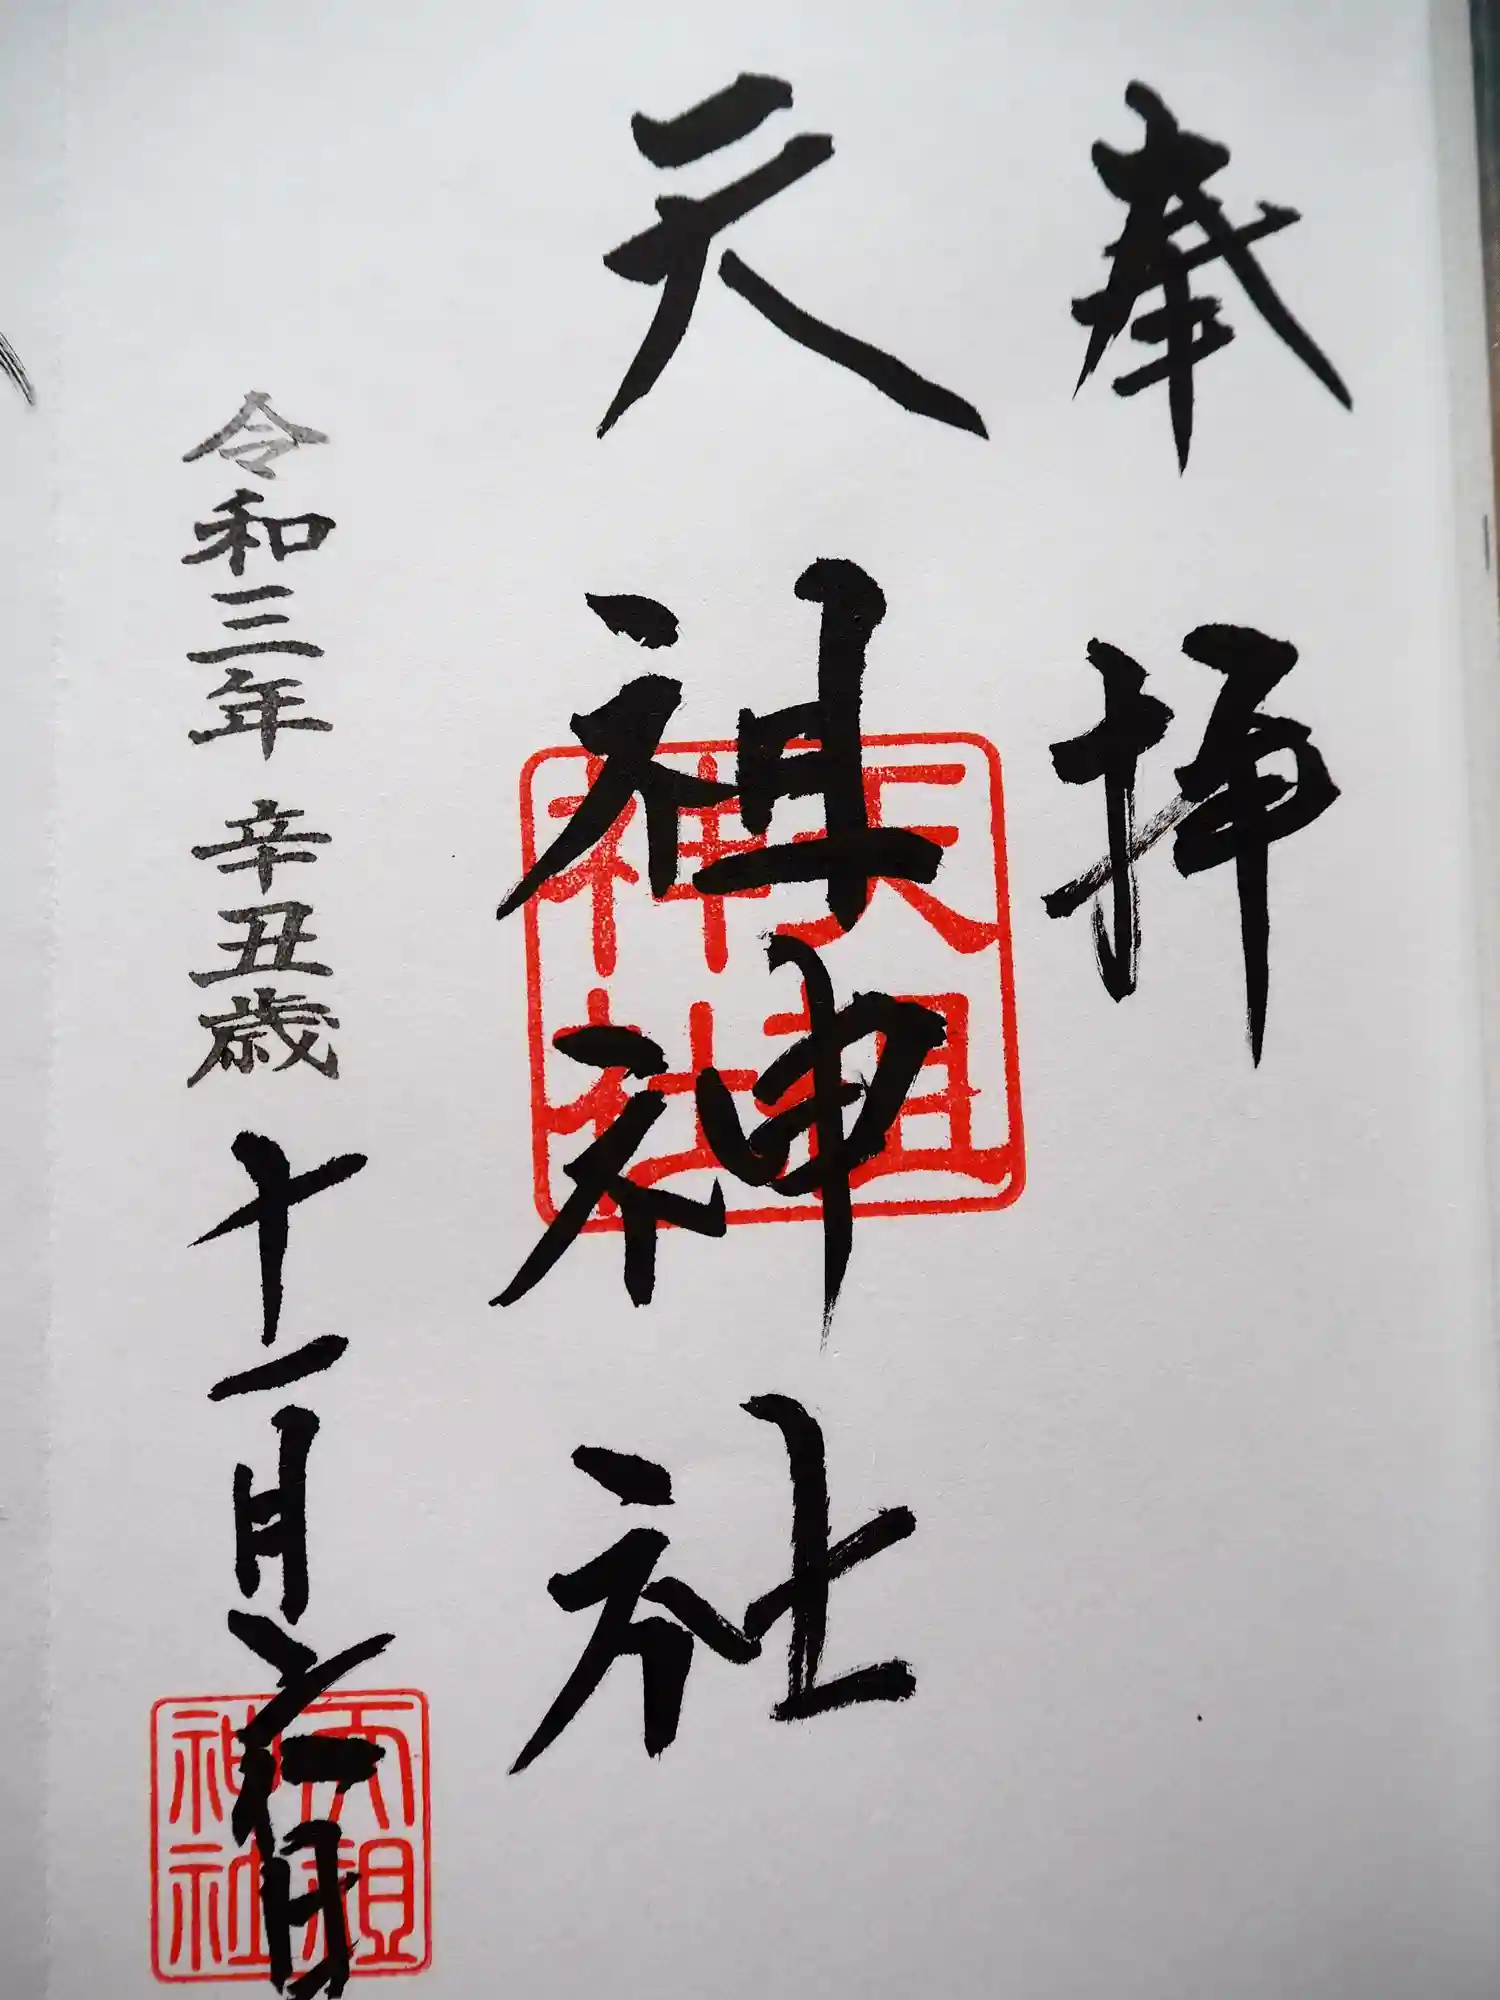 奉拝
天祖神社
天祖
神社
令和三年 辛丑歳 十一月 日
天祖
神社